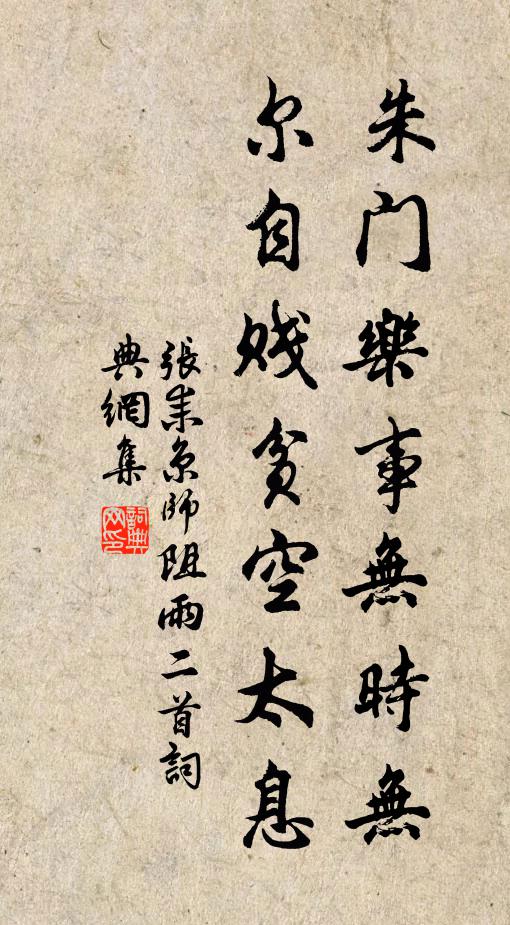 朱门樂事無時無
尔自贱貧空太息
張耒京師阻雨二首詞
典網集
詞典网印